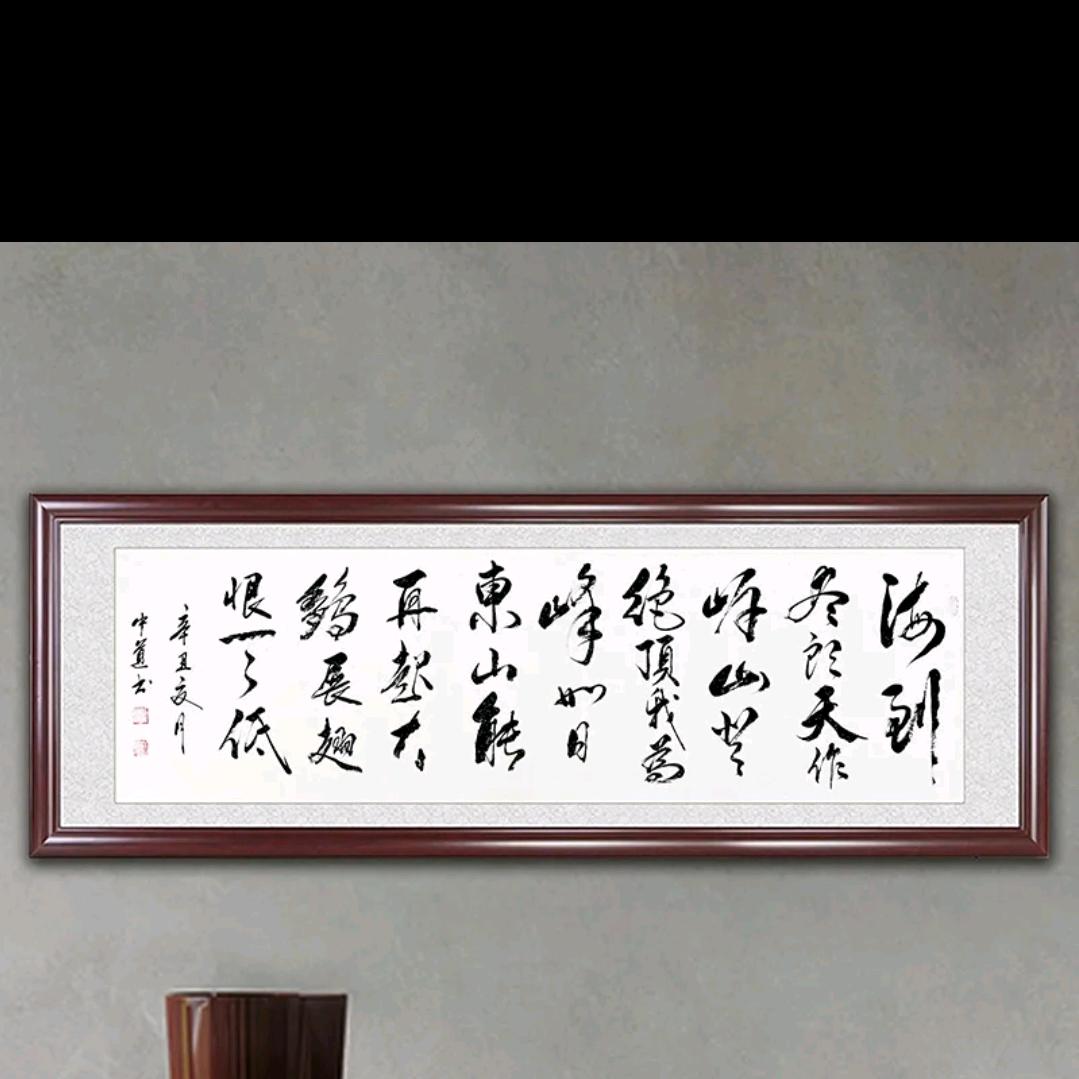 海到
尽头天作
岸山登
绝顶我為
峰如日
東山能
再起大
鵬展翅
恨天低
辛丑夏月
中道书